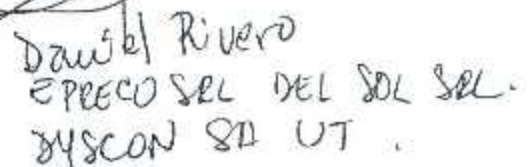 Daniel Rivero
EPRECO SRL DEL SOL SRL.
DYSCON SA UT.